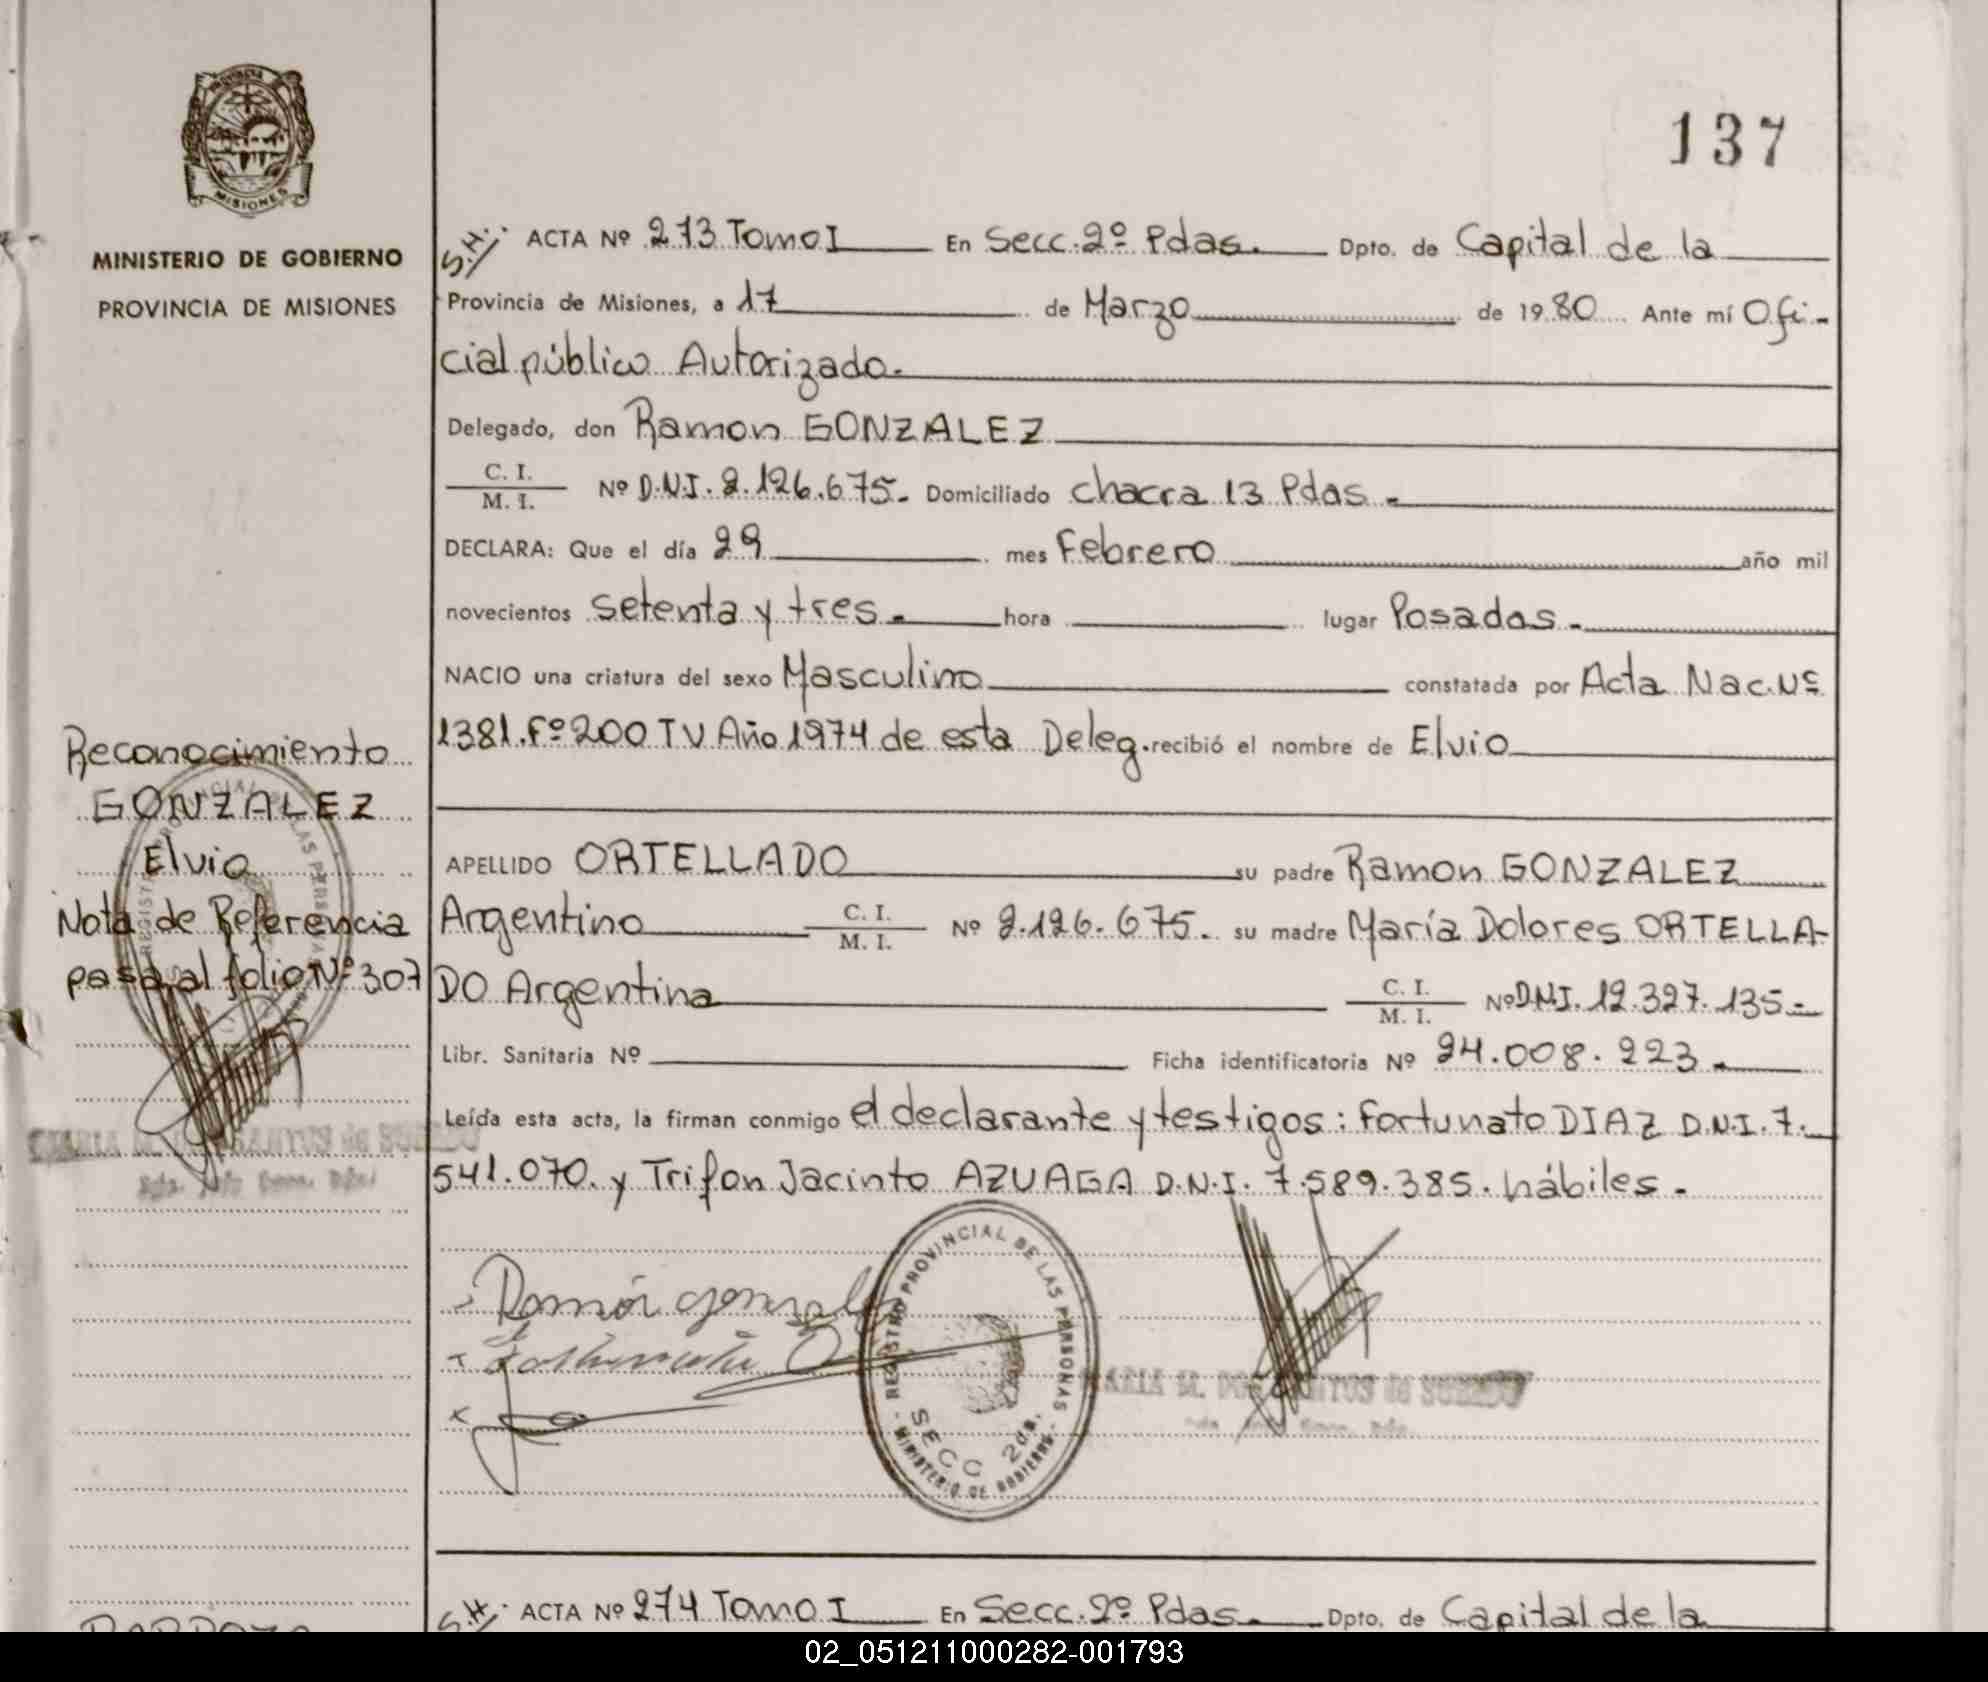 137
MISIONES
MINISTERIO DE GOBIERNO
PROVINCIA DE MISIONES
Reconocimiento
GONZALEZ
Elvio
Nota de Referencia
pasa al folio Nº 307
S.H. ACTA Nº 273 Tomo I En Secc. 2º Pdas. Dpto. de Capital de la
Provincia de Misiones, a 17 de Marzo de 1980 Ante mí Ofi-
cial público Autorizado.
Delegado, don Ramon GONZALEZ
C. I.
M. I. Nº D.N.I. 2.126.675. Domiciliado chacra 13 Pdas.
DECLARA: Que el día 29 mes Febrero año mil
novecientos setenta y tres. hora lugar Posadas.
NACIO una criatura del sexo Masculino constatada por Acta Nac. Nº
1381. Fº 200 T V Año 1974 de esta Deleg. recibió el nombre de Elvio
APELLIDO ORTELLADO su padre Ramon GONZALEZ
Argentino C. I. M. I. Nº 2.126.675. su madre María Dolores ORTELLA-
DO Argentina C. I. M. I. Nº D.N.I. 12.327.135
Libr. Sanitaria Nº Ficha identificatoria Nº 24.008.223.
Leída esta acta, la firman conmigo el declarante y testigos: Fortunato DIAZ D.N.I. 7.
541.070. y Trifon Jacinto AZUAGA D.N.I. 7.589.385. hábiles.
Ramón Gonzalez
REGISTRO PROVINCIAL DE LAS PERSONAS
SECC 2da.
MINISTERIO DE GOBIERNO
S.H. ACTA Nº 274 Tomo I En Secc. 2º Pdas. Dpto. de Capital de la
02_051211000282-001793